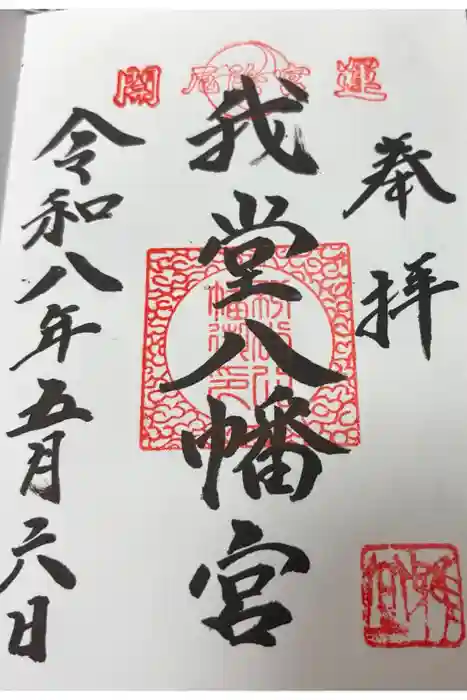 奉拝
開 厄除宮 運
我堂八幡宮
令和八年五月六日